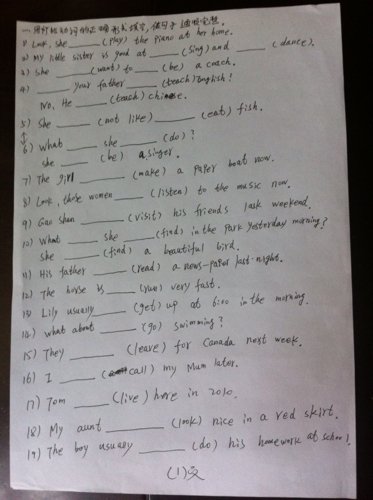 一.用所给动词的正确形式填空,使句子通顺完整.
1) Look, she ____ (play) the piano at her home.
2) My little sister is good at ____ (sing) and ____ (dance).
3) She ____ (want) to ____ (be) a coach.
4) ____ your father ____ (teach) English?
No. He ____ (teach) Chinese.
5) She ____ (not like) ____ (eat) fish.
6) What ____ she ____ (do)?
she ____ (be) a singer.
7) The girl ____ (make) a paper boat now.
8) Look, those women ____ (listen) to the music now.
9) Gao shan ____ (visit) his friends last weekend.
10) What ____ she ____ (find) in the park yesterday morning?
she ____ (find) a beautiful bird.
11) His father ____ (read) a news-paper last night.
12) The horse is ____ (run) very fast.
13) Lily usually ____ (get) up at 6:00 in the morning.
14) what about ____ (go) swimming?
15) They ____ (leave) for Canada next week.
16) I ____ (call) my Mum later.
17) Tom ____ (live) here in 2010.
18) My aunt ____ (look) nice in a red skirt.
19) The boy usually ____ (do) his homework at school.
(1)